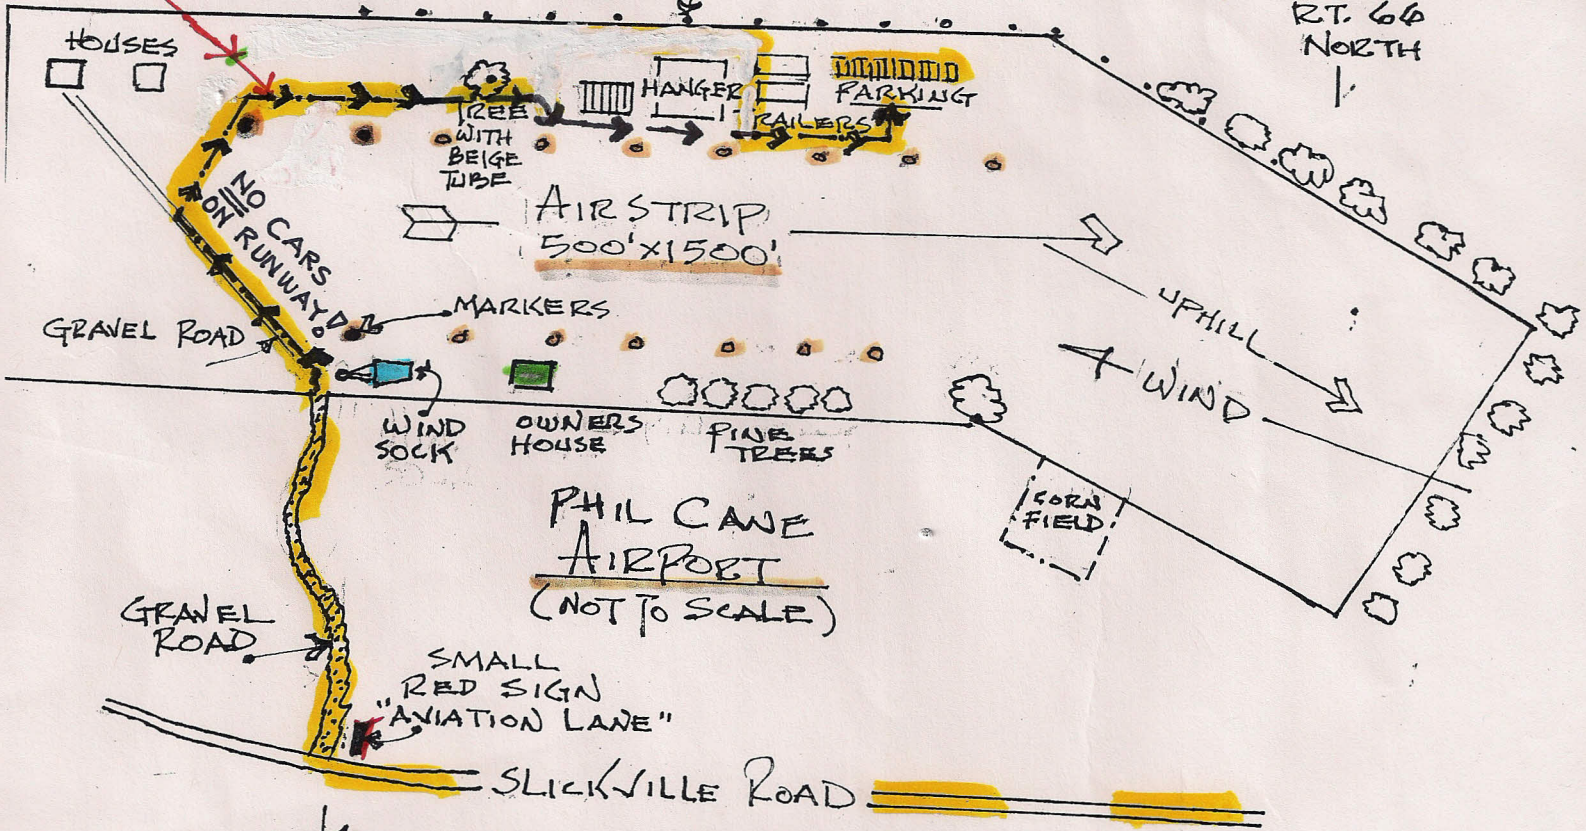 RT. 66
NORTH
HOUSES
HANGER
PARKING
TRAILERS
TREE
WITH
BEIGE
TUBE
NO CARS
ON RUNWAY!
AIRSTRIP
500'X1500'
MARKERS
GRAVEL ROAD
UPHILL
WIND
WIND
SOCK
OWNERS
HOUSE
PINE
TREES
CORN
FIELD
PHIL CANE
AIRPORT
(NOT TO SCALE)
GRAVEL
ROAD
SMALL
RED SIGN
"AVIATION LANE"
SLICKVILLE ROAD